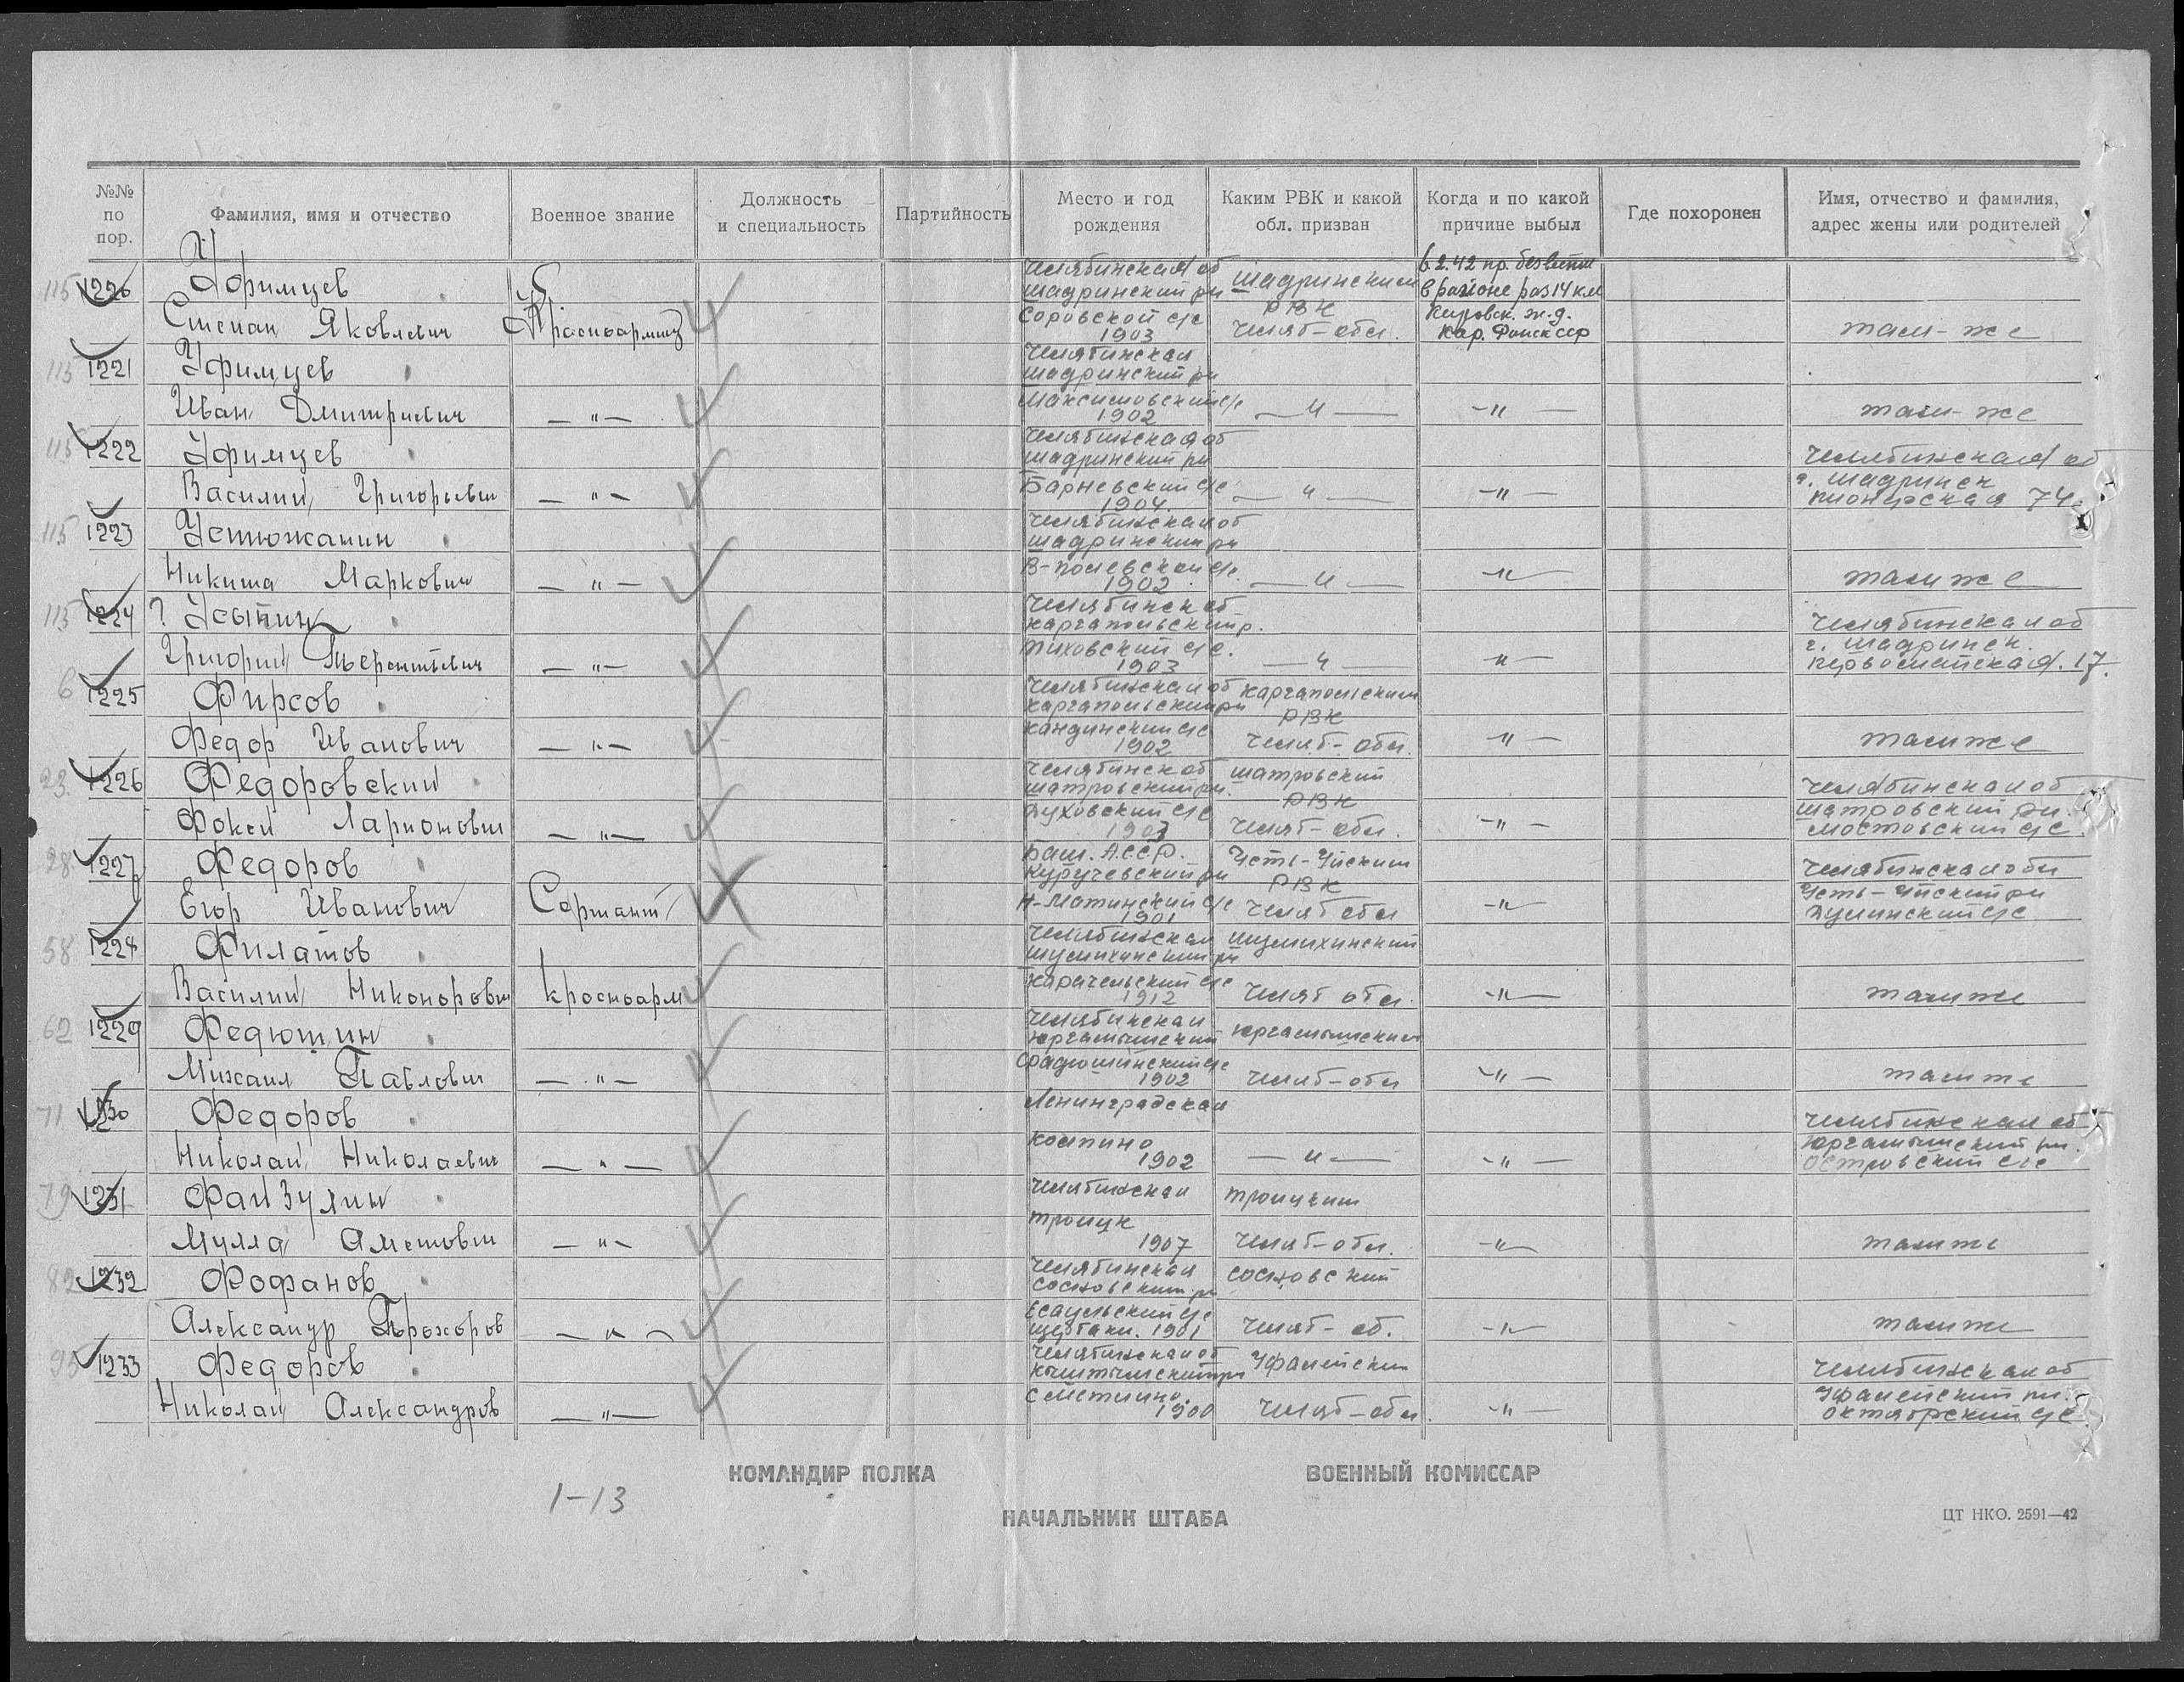 №№ по пор.
Фамилия, имя и отчество
Военное звание
Должность и специальность
Партийность
Место и год рождения
Каким РВК и какой обл. призван
Когда и по какой причине выбыл
Где похоронен
Имя, отчество и фамилия, адрес жены или родителей
115 1220 Уфимцев
Степан Яковлевич Красноармеец
Челябинская об
Шадринский рн
1903
Шадринским
РВК
Челяб-обл.
6.2.42 пр. без вести
в районе раз 14 км
Кировск. ж.д.
Кар. Финск сср
там-же
115 1221 Уфимцев
Иван Дмитриевич — " —
Челябинская
Шадринский рн
Максимовский с/с
1902
— " —
— " —
там-же
115 1222 Уфимцев
Василий Григорьевич — " —
Челябинская об
Шадринский рн
Барневский с/с
1904.
— " —
— " —
Челябинская об
г. Шадринск
Пионерская 74
115 1223 Устюжанин
Никита Маркович — " —
Челябинская об
Шадринский рн
В-полевской с/с
1902
— " —
— " —
там же
115 1224 ? Усынин
Григорий Терентьевич — " —
Челябинск об
Каргапольский р.
Тиховский с/с.
1903
— " —
— " —
Челябинская об
г. Шадринск.
Первомайская. 17.
6 1225 Фирсов
Федор Иванович — " —
Челябинская об
Каргапольский рн
1902
Каргапольским
РВК
Челяб-обл.
— " —
там же
23. 1226 Федоровский
Фокей Ларионович — " —
Челябинск об
Шатровский рн.
Духовский с/с
1903
Шатровский
РВК
Челяб-обл.
— " —
Челябинская об
Шатровский рн.
Мостовский с/с
28 1227 Федоров
Егор Иванович Сержант
Баш. А.С.С.Р.
1901
Усть-Уйским
РВК
Челяб обл
— " —
Челябинская обл
Усть-Уйский рн
58 1228 Филатов
Василий Никонорович Красноарм
Челябинская
Шумихинский рн
Карачельский с/с
1912
Шумихинский
Челяб обл.
— " —
там же
62 1229 Федюшин
Михаил Павлович — " —
Челябинская
Юргамышский
1902
Юргамышский
Челяб-обл
— " —
там же
71 1230 Федоров
Николай Николаевич — " —
Ленинградская
Колпино
1902
— " —
— " —
Челябинская об
Юргамышский рн.
Островский с/с
79 1231 Файзулин
Мулла Аметович — " —
Челябинская
Троицк
1907
Троицким
Челяб-обл.
— " —
там же
82 1232 Фофанов
Александр Прохоров — " —
Челябинская
Сосновский рн
Есаульский с/с
1901
Сосновский
Челяб-об.
— " —
там же
95 1233 Федоров
Николай Александров — " —
Челябинская об
Кыштымский рн
1900
Уфалейским
Челяб-обл.
— " —
Челябинская об
Уфалейский рн.
Октябрский с/с
КОМАНДИР ПОЛКА
ВОЕННЫЙ КОМИССАР
1-13
НАЧАЛЬНИК ШТАБА
ЦТ НКО. 2591—42